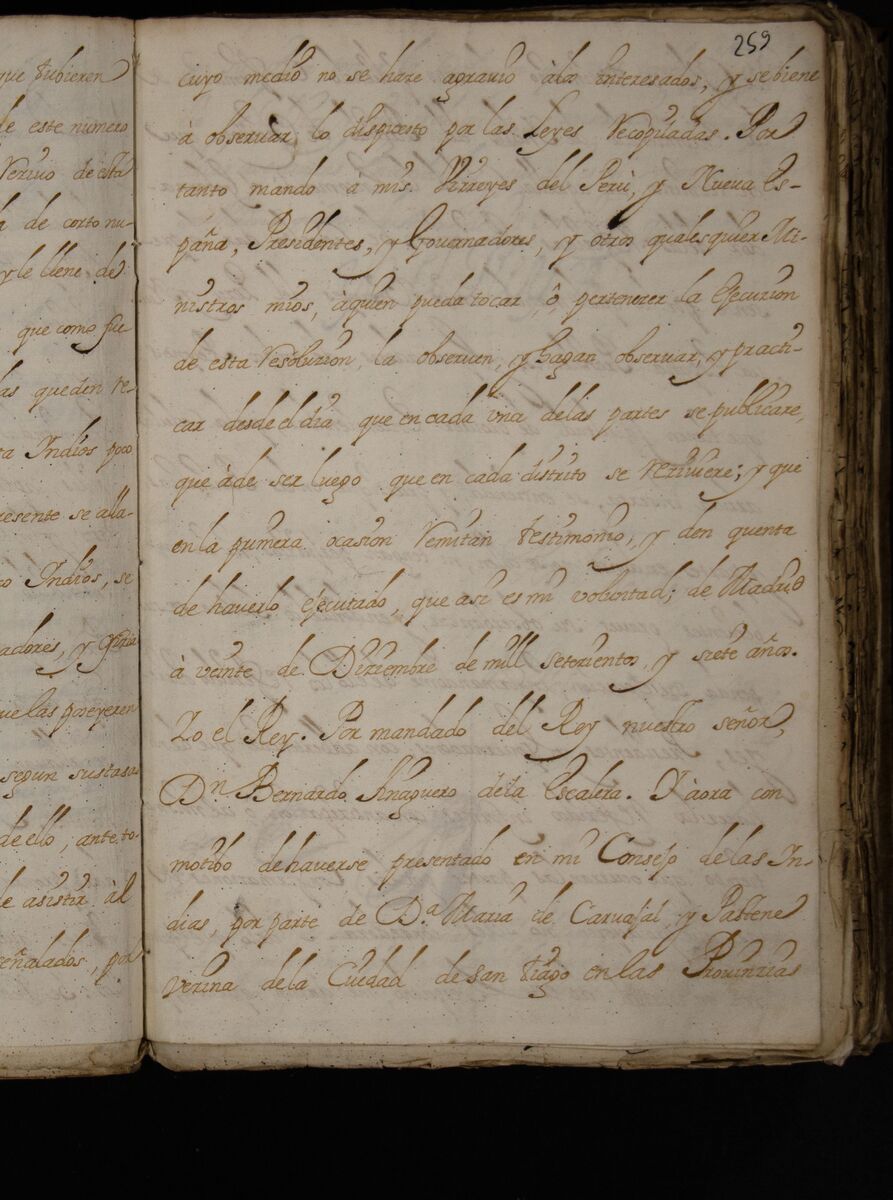 que tubieren
de este numero
Verino de esta
de corto nu-
y le llene de
que como fue
las queden re-
ta Indios poco
resente se alla-
co Indios, se
adores, y
ue las poseyeren
segun sustasa
de ello, ante, to-
de asistir àl
señalados, por
259
cuyo medio no se haze agravio àlos interesados, y se biene
à observar lo dispuesto por las Leyes Recopiladas. Por
tanto mando à mis Virreyes del Perù, y Nueva Es-
paña, Presidentes, y Governadores, y otros qualesquier Mi-
nistros mios, àquien pueda tocar, ò pertenezer la Ejecuzion
de esta Resoluzion, la observen, y hagan observar, y practi-
car desde el dia que en cada una delas partes se publicare,
que àde ser luego que en cada distrito se reziviere; y que
en la primera ocasion remitan testimonio, y den quenta
de haverlo ejecutado, que asi es mi voluntad; de Madrid
à veinte de Diziembre de mill setezientos y siete años.
Yo el Rey. Por mandado del Rey nuestro señor,
Dn Bernardo Tinaguero dela Escalera. Y àora con
motibo de haverse presentado en mi Consejo de las In-
dias, por parte de Da Maria de Carvajal y Pastene
vezina dela Ciudad de san tiago en las Provinzias